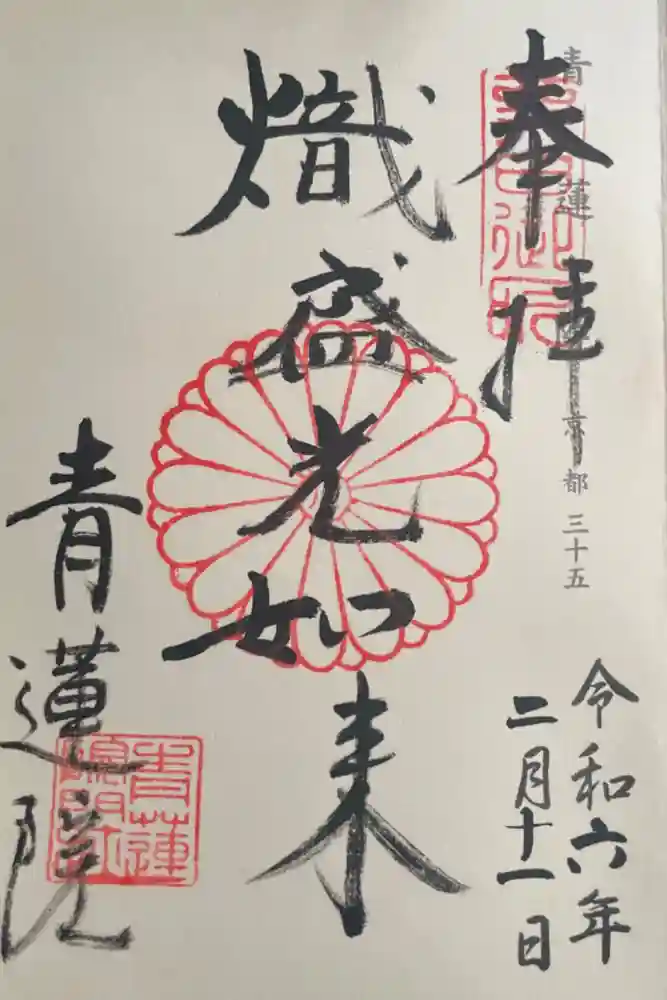 奉拝
青蓮
京都 三十五
令和六年
二月十一日
熾盛光如来
青蓮院